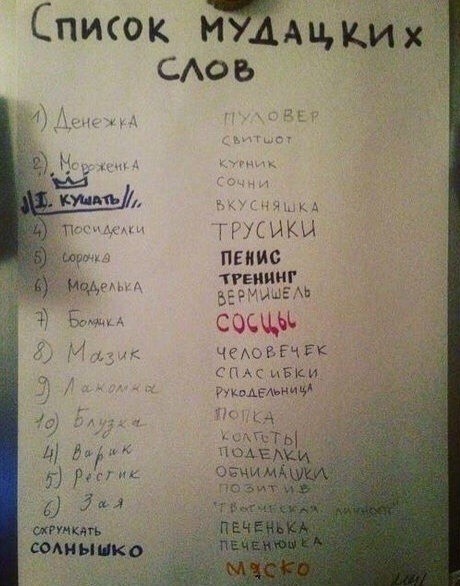 Список мудацких
слов
1) Денежка
2) Мороженка
I. кушать
4) посиделки
5) сорочка
6) Моделька
7) Болячка
8) Мазик
9) Лакомка
10) Блузка
4) Варик
5) Рестик
6) Зая
схрумкать
солнышко
пуловер
свитшот
курник
сочни
вкусняшка
трусики
пенис
тренинг
вермишель
сосцы
человечек
спасибки
рукодельница
попка
колготы
поделки
обнимашки
позитив
"творческая личность"
печенька
печенюшка
мяско